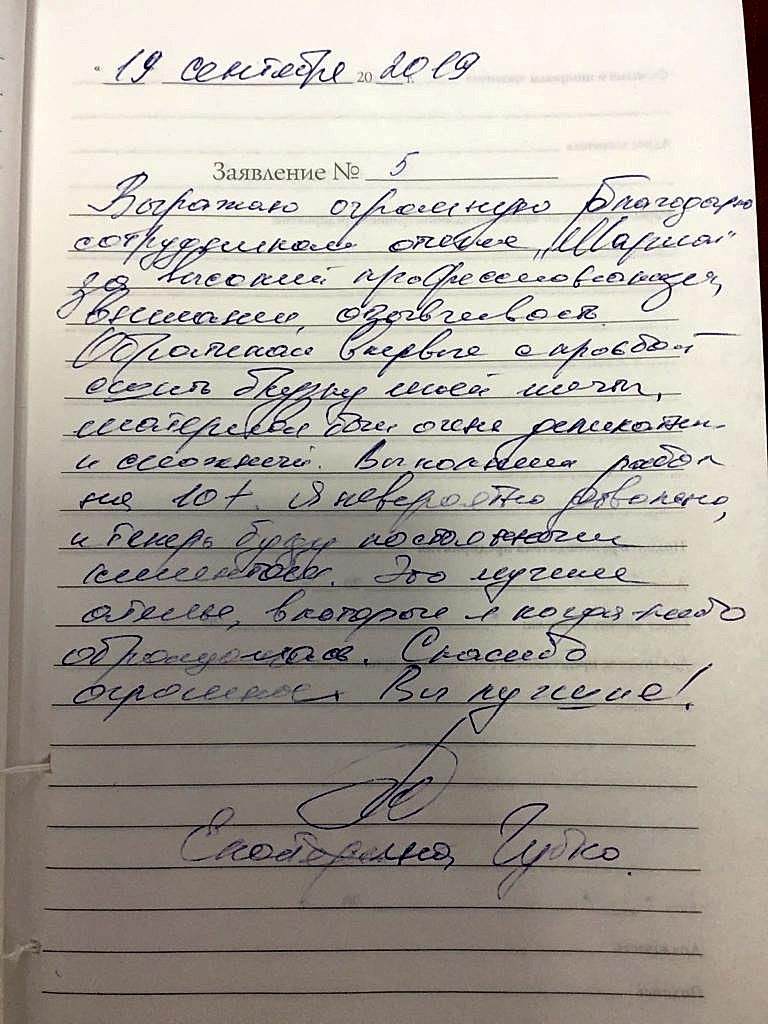 " 19 " сентября 20 2019 г.
Заявление № 5
Выражаю огромную благодарн
сотрудникам ателье „
за высокий профессионализм,
внимание, отзывчивость.
Обратилась впервые с просьбой
сшить блузку моей мечты,
материал был очень деликатн
и сложный. Выполнили работу
на 10+. Я невероятно довольна,
и теперь буду постоянным
клиентом. Это лучшее
ателье, в которые я когда-либо
обращалась. Спасибо
огромное. Вы лучшие!
Екатерина Губко.